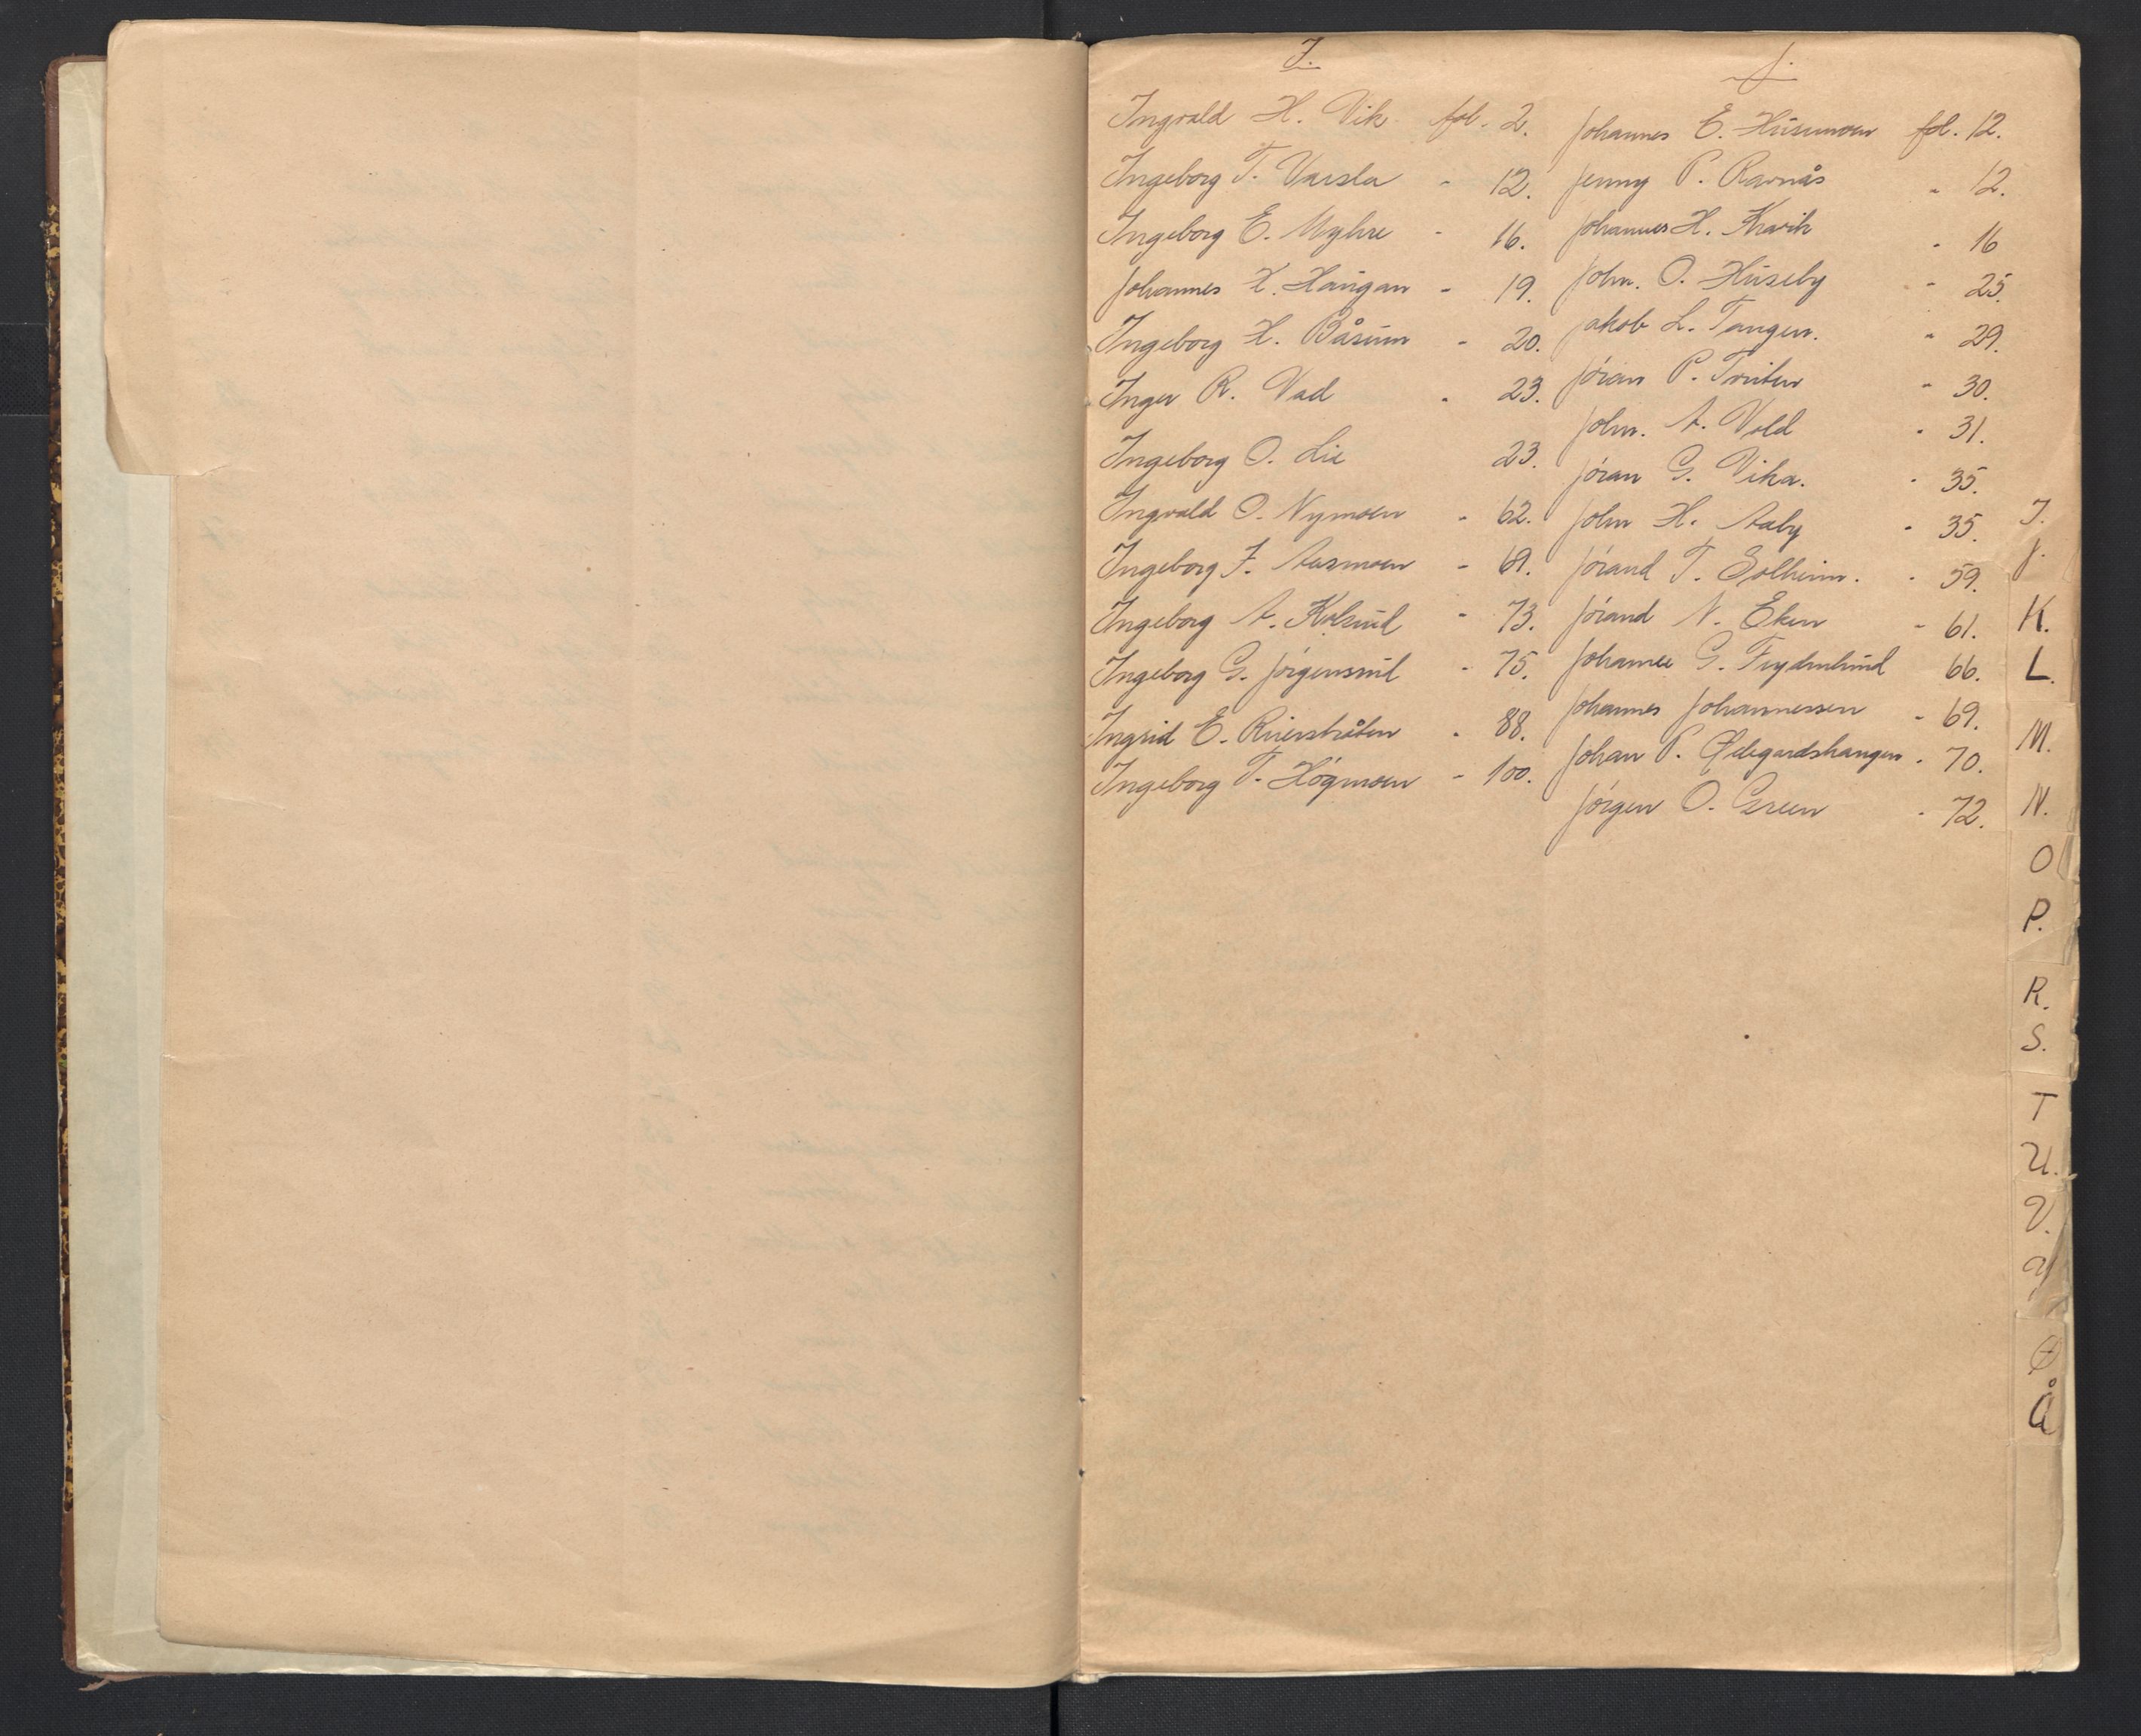 I.
Ingvald H. Vik fol. 2.
Ingeborg T. Varsla - 12.
Ingeborg E. Myhre - 16.
Johannes H. Haugan - 19.
Ingeborg H. Båsum - 20.
Inger R. Vad - 23.
Ingeborg O. Lie 23.
Ingvald O. Nymoen - 62.
Ingeborg J. Aasmoen - 69.
Ingeborg A. Kolsrud - 73.
Ingeborg G. Jörgensrud - 75.
Ingrid E. - 88.
Ingeborg T. Högmoen - 100.
J.
Johannes E. Husumoen fol. 12.
Jenny P. Ravnås - 12.
Johannes H. Kravik - 16
John. O. Huseby - 25.
Jakob L. Tangen. - 29.
Jöran P. Truten - 30.
John. A. Vold - 31.
Jöran G. Vika. - 35.
John H. Aaby - 35.
Jörand T. Solheim. - 59.
Jörand N. Eken - 61.
Johanne G. Frydenlund 66.
Johannes Johannessen - 69.
Johan P. Ødegardshaugen - 70.
Jörgen O. Green - 72.
I.
J.
K.
L.
M.
N.
O
P.
R.
S.
T
U.
V.
Y
Ø
Å